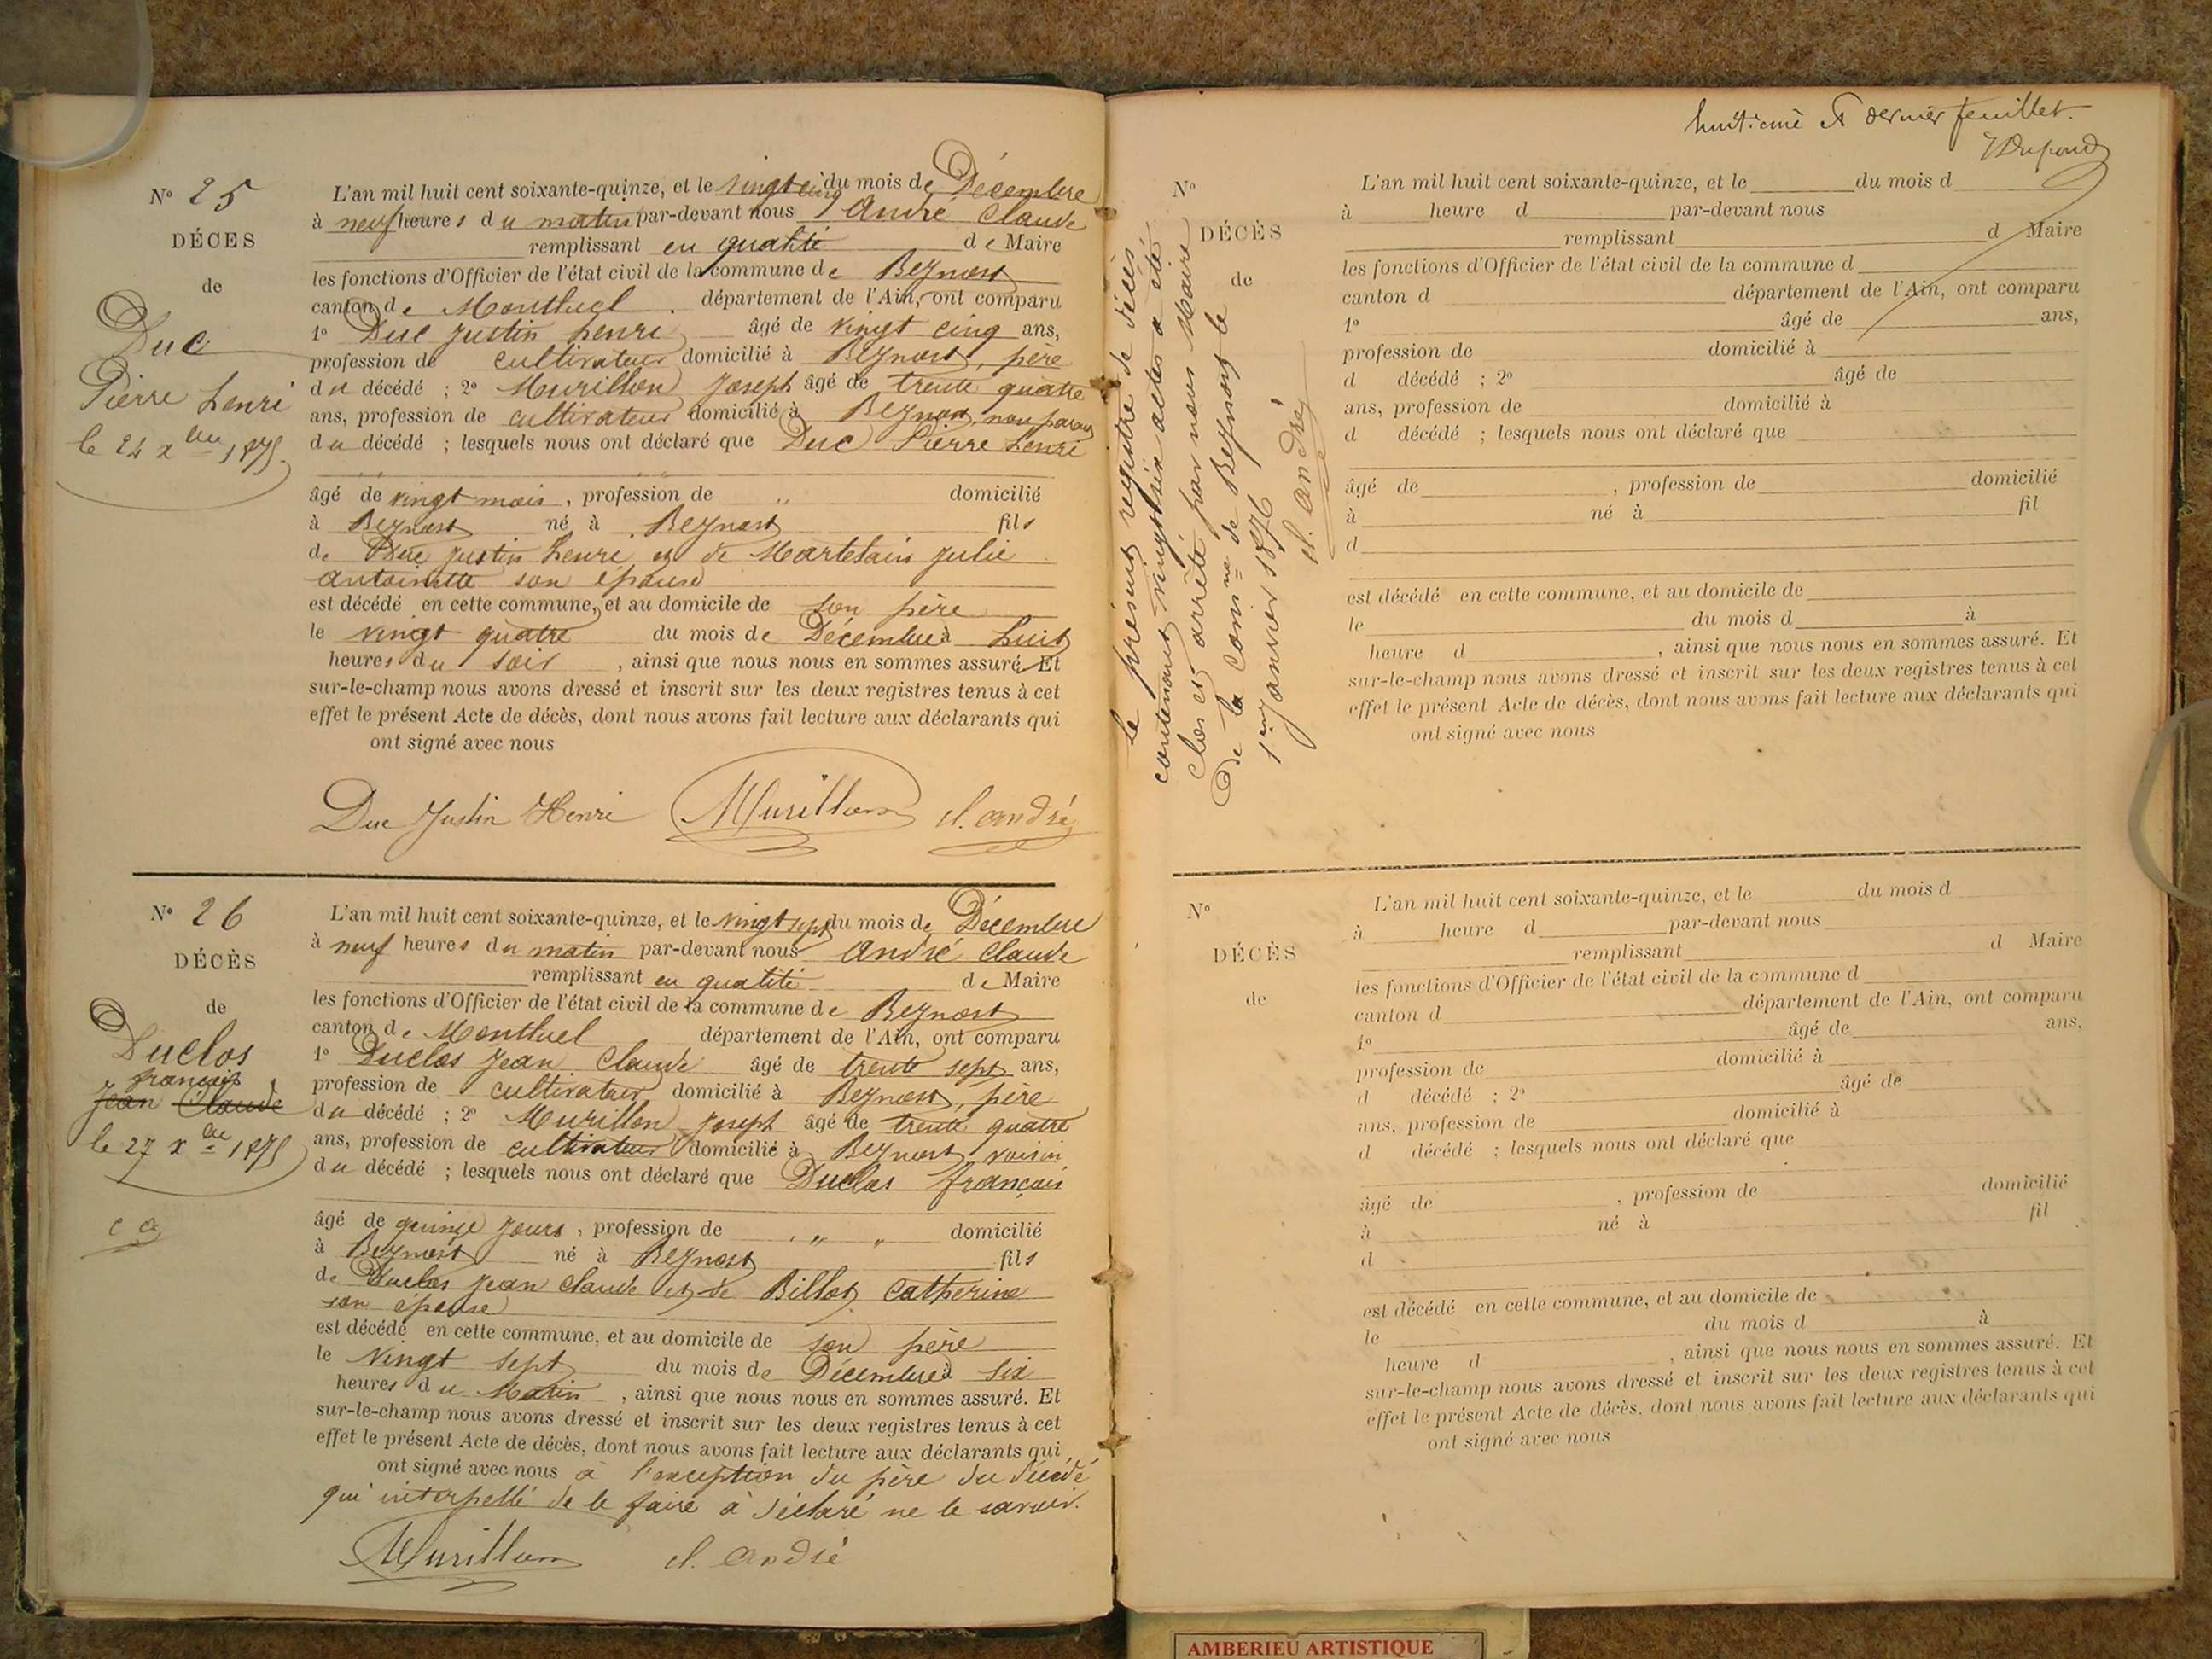 N° 25
DÉCES
de
Duc
Pierre henri
le 24 xbre 1875.
L'an mil huit cent soixante-quinze, et le vingt cinq du mois de Décembre
à neuf heures du matin par-devant nous André Claude
remplissant en qualité de Maire
les fonctions d'Officier de l'état civil de la commune de Beynost
canton de Montluel département de l'Ain, ont comparu
1° Duc Justin henri âgé de vingt cinq ans,
profession de cultivateur domicilié à Beynost, père
du décédé ; 2° Murillon Joseph âgé de trente quatre
ans, profession de cultivateur domicilié à Beynost, non parent
du décédé ; lesquels nous ont déclaré que Duc Pierre henri
âgé de vingt mois, profession de " domicilié
à Beynost né à Beynost fils
de Duc Justin henri et de Martelain Julie
antoinette son épouse
est décédé en cette commune, et au domicile de son père
le vingt quatre du mois de Décembre à huit
heures du soir, ainsi que nous nous en sommes assuré. Et
sur-le-champ nous avons dressé et inscrit sur les deux registres tenus à cet
effet le présent Acte de décès, dont nous avons fait lecture aux déclarants qui
ont signé avec nous
Duc Justin Henri Murillon cl. andré
N° 26
DÉCÈS
de
Duclos
françois
Jean Claude
le 27 xbre 1875
c a
L'an mil huit cent soixante-quinze, et le vingt sept du mois de Décembre
à neuf heures du matin par-devant nous André Claude
remplissant en qualité de Maire
les fonctions d'Officier de l'état civil de la commune de Beynost
canton de Montluel département de l'Ain, ont comparu
1° Duclos Jean Claude âgé de trente sept ans,
profession de cultivateur domicilié à Beynost, père
du décédé ; 2° Murillon Joseph âgé de trente quatre
ans, profession de cultivateur domicilié à Beynost voisin
du décédé ; lesquels nous ont déclaré que Duclos françois
âgé de quinze jours, profession de " " domicilié
à Beynost né à Beynost fils
de Duclos Jean Claude et de Billot Catherine
son épouse
est décédé en cette commune, et au domicile de son père
le Vingt sept du mois de Décembre à six
heures du Matin, ainsi que nous nous en sommes assuré. Et
sur-le-champ nous avons dressé et inscrit sur les deux registres tenus à cet
effet le présent Acte de décès, dont nous avons fait lecture aux déclarants qui
ont signé avec nous à l'exception du père du décédé
qui interpellé de le faire à déclaré ne le savoir.
Murillon cl. andré
huitième et dernier feuillet.
Le présent registre de décès
contenant vingt six actes a été
clos et arrêté par nous Maire
de la comne de Beynost le
1er janvier 1876
cl. andré
N°
DÉCÈS
de
L'an mil huit cent soixante-quinze, et le du mois d
à heure d par-devant nous
remplissant d Maire
les fonctions d'Officier de l'état civil de la commune d
canton d département de l'Ain, ont comparu
1° âgé de ans,
profession de domicilié à
d décédé ; 2° âgé de
ans, profession de domicilié à
d décédé ; lesquels nous ont déclaré que
âgé de , profession de domicilié
à né à fil
d
est décédé en cette commune, et au domicile de
le du mois d à
heure d , ainsi que nous nous en sommes assuré. Et
sur-le-champ nous avons dressé et inscrit sur les deux registres tenus à cet
effet le présent Acte de décès, dont nous avons fait lecture aux déclarants qui
ont signé avec nous
N°
DÉCÈS
de
L'an mil huit cent soixante-quinze, et le du mois d
à heure d par-devant nous
remplissant d Maire
les fonctions d'Officier de l'état civil de la commune d
canton d département de l'Ain, ont comparu
1° âgé de ans,
profession de domicilié à
d décédé ; 2° âgé de
ans, profession de domicilié à
d décédé ; lesquels nous ont déclaré que
âgé de , profession de domicilié
à né à fil
d
est décédé en cette commune, et au domicile de
le du mois d à
heure d , ainsi que nous nous en sommes assuré. Et
sur-le-champ nous avons dressé et inscrit sur les deux registres tenus à cet
effet le présent Acte de décès, dont nous avons fait lecture aux déclarants qui
ont signé avec nous
AMBERIEU ARTISTIQUE